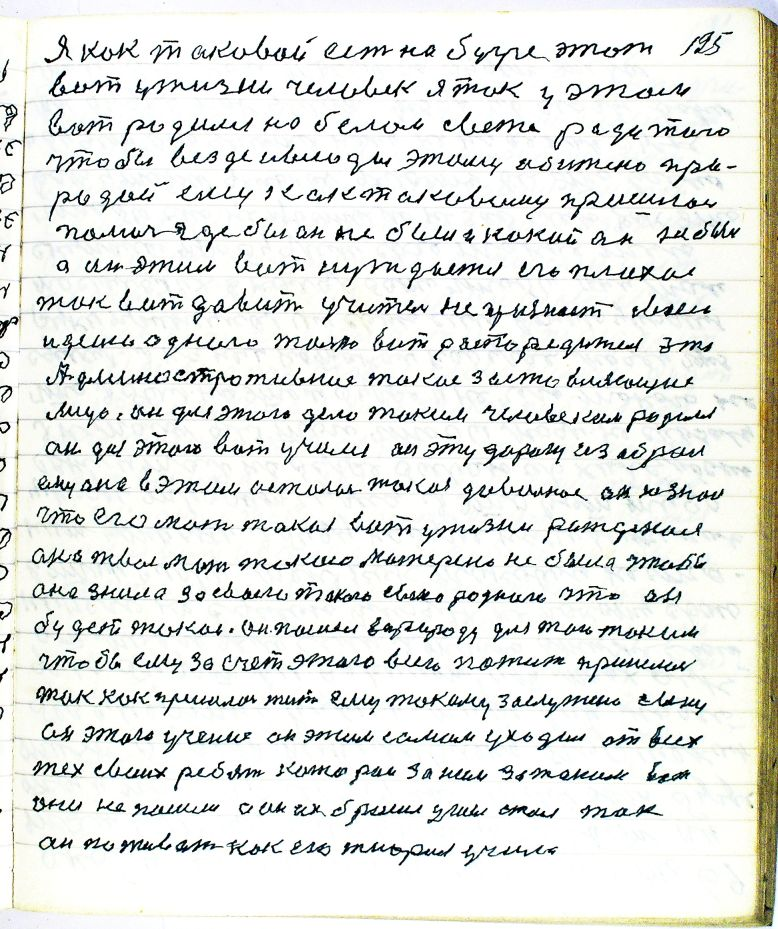 Я кок таковой ест на бугре этот 195
вот у жизни человек я так у этом
вот родился на белом свете ради того
чтобы везде и всюды этому обижено при-
родой ему как таковому пришлося
помоч где бы он не был и кокой он не был
а он этим вот нуждается его плохое
так вот давит учител не признает своею
идею одного того вот распоредится это
Административное такое заставляющие
лицо. он для этого дела таким человеком родился
он для этого вот учился он эту дорогу избрал
ему она в этом осталас такая довольное он не знал
что его мат такая вот у жизни рожденая
она твоя мать такою матерею не была чтобы
она знала за своего такого свого родного что он
будет такое. он пошел в природу для того таким
чтобы ему за счет этого всего пожит пришлося
так как пришлос жит ему такому заслужено сыну
он этого учение он этим самым уходил от всех
тех своих ребят которои за ним за таким вот
они не пошли а он их бросил учил стал так
он поживат как его теория учила